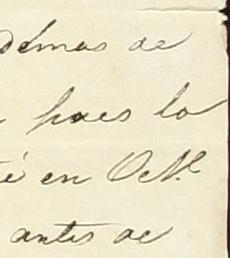 demas de
pues la
té en
antes de